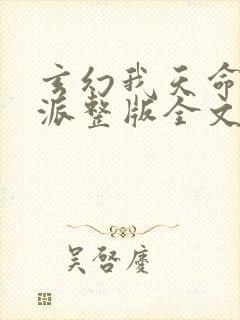 玄幻我天命
派整版全文
吴启庆